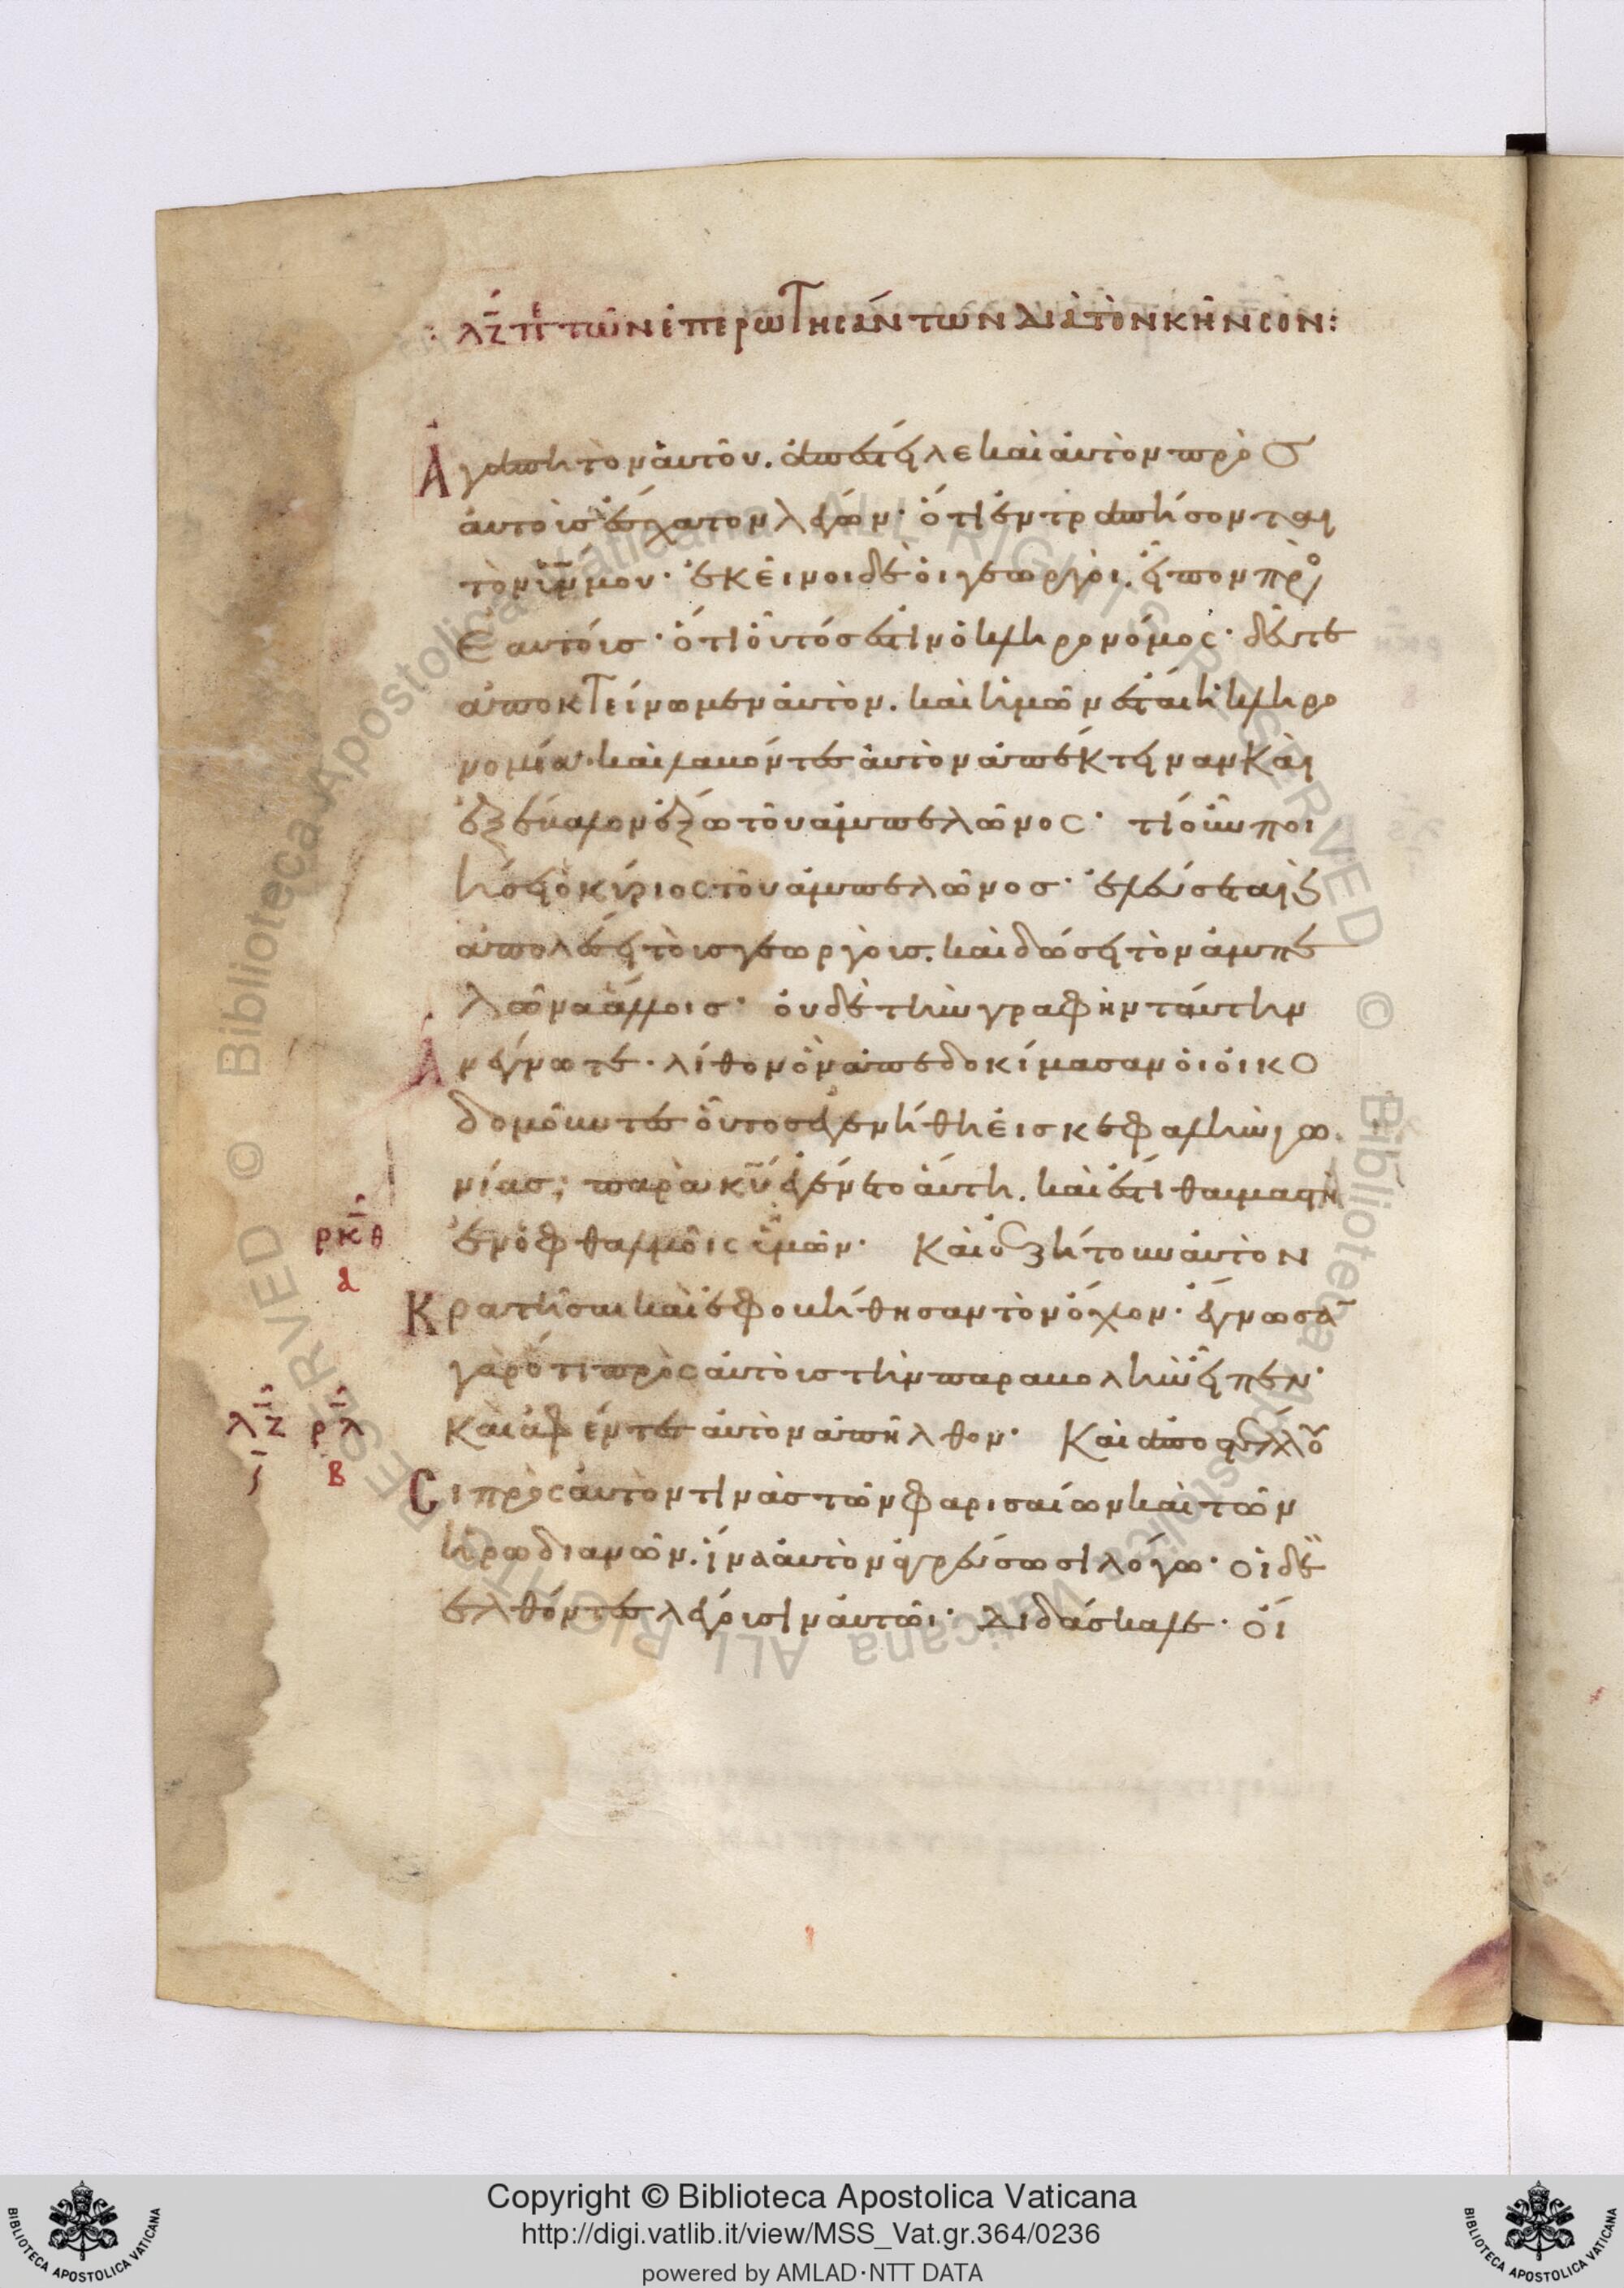 : λζ πε τῶν ἐπερωτησάντων διὰ τὸν κῆνσον:
Ἀγαπητὸν αὐτοῦ. ἀπέστειλε καὶ αὐτὸν πρὸσ
αὐτοὺσ ἔσχατον λέγων· ὅτι ἐντραπήσονται
τὸν υἱόν μου· ἐκεῖνοι δὲ οἱ γεωργοὶ. εἶπον πρὸ
ἑαυτούσ· ὅτι οὗτόσ ἐστιν ὁ κληρονόμος· δεῦτε
ἀποκτείνωμεν αὐτὸν. καὶ ἡμῶν ἔσται ἡ κληρο
νομία· καὶ λαβόντεσ αὐτὸν ἀπέκτειναν καὶ
ἐξέβαλον ἔξω τοῦ ἀμπελῶνος· τί οὖν ποι
ήσει ὁ κύριος τοῦ ἀμπελῶνοσ· ἐλεύσεται καὶ
ἀπολέσει τοὺσ γεωργούσ. καὶ δώσει τὸν ἀμπε
λῶνα ἄλλοισ· οὐδὲ τὴν γραφὴν ταύτην
Ἀνέγνωτε· λίθον ὃν ἀπεδοκίμασαν οἱ οἰκο
δομοῦντεσ οὗτοσ ἐγενήθη εἰσ κεφαλὴν γω
νίασ; παρὰ κυ ἐγένετο αὕτη. καὶ ἔστι θαυμαστὴ
ἐν ὀφθαλμοῖς ἡμῶν· Καὶ ἐζήτουν αὐτὸν
ρκθ
α
Κρατῆσαι καὶ ἐφοβήθησαν τὸν ὄχλον· ἔγνωσα
γὰρ ὅτι πρὸς αὐτοὺσ τὴν παραβολὴν εἶπεν·
Καὶ ἀφέντεσ αὐτὸν ἀπῆλθον· Καὶ ἀποστέλλου
λζ ρλ
β
Σι πρὸς αὐτόν τινὰσ τῶν φαρισαίων καὶ τῶν
ἡρωδιανῶν. ἵνα αὐτὸν ἀγρεύσωσι λόγω· οἱ δὲ
ἐλθόντεσ λέγουσιν αὐτῶι· διδάσκαλε· οἴ
Copyright © Biblioteca Apostolica Vaticana
http://digi.vatlib.it/view/MSS_Vat.gr.364/0236
powered by AMLAD·NTT DATA